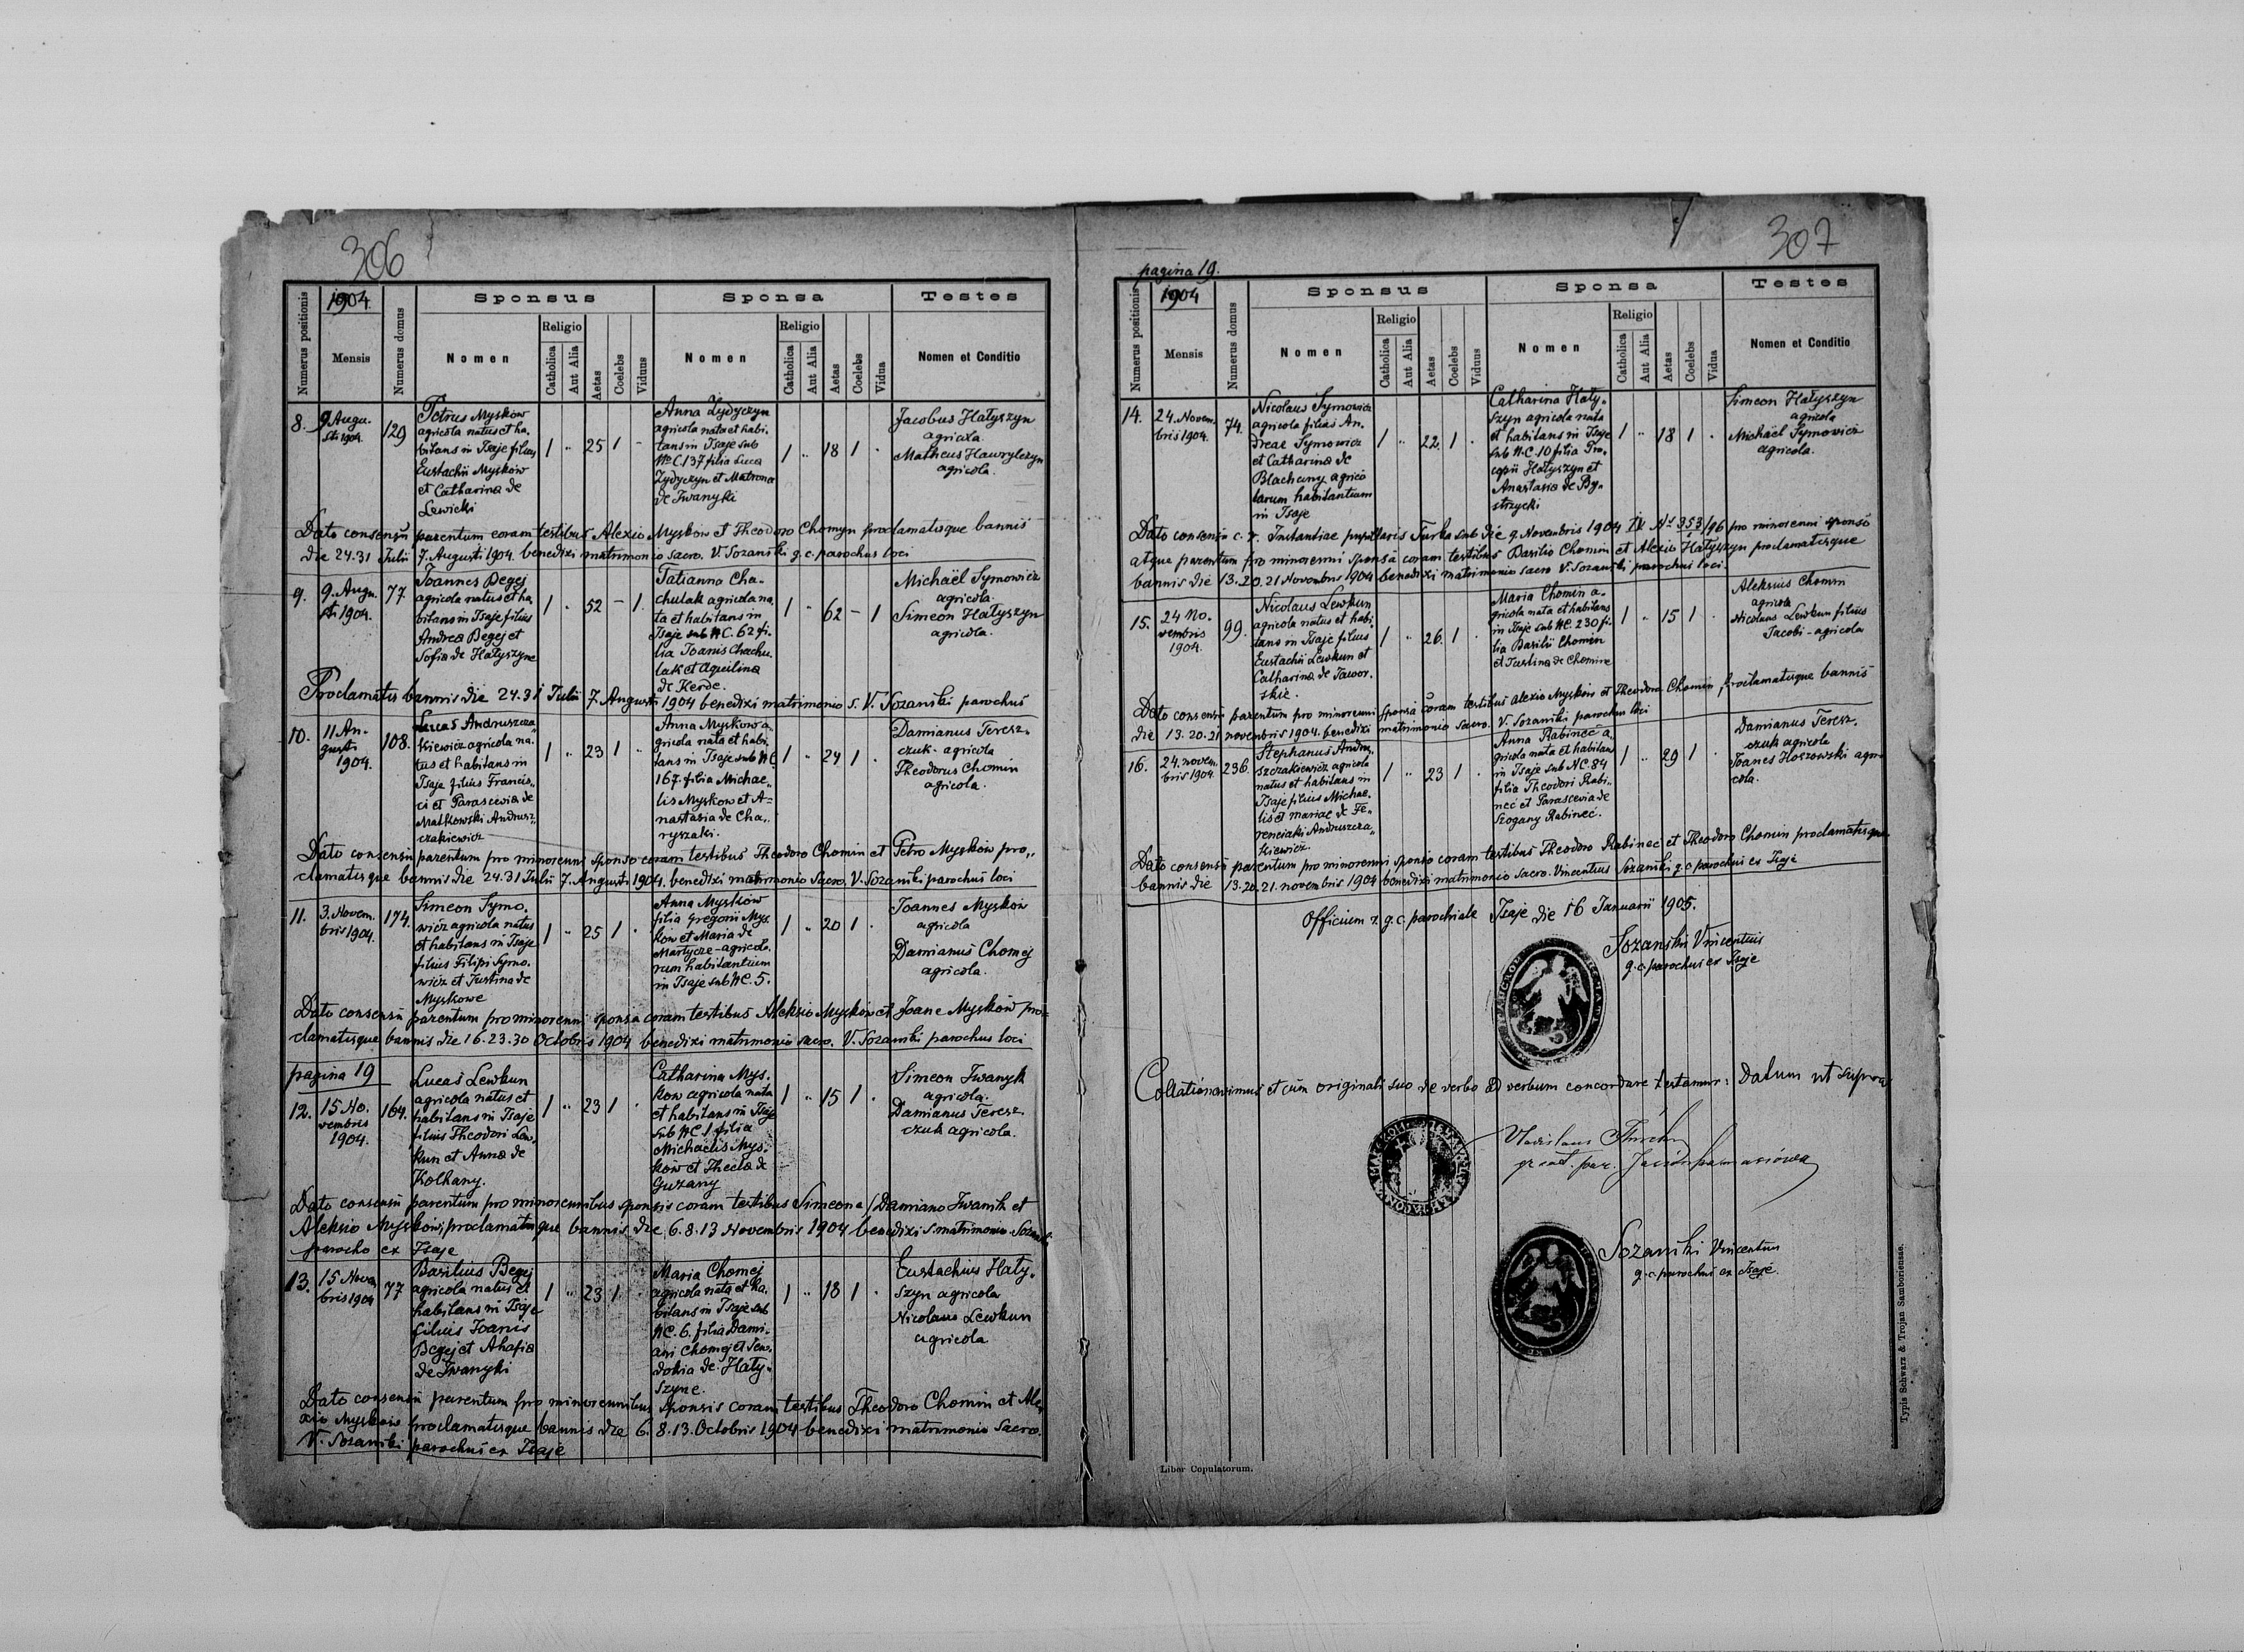 306
1904
Numerus positionis
Mensis
Numerus domus
Sponsus
Nomen
Religio
Catholica
Aut Alia
Aetas
Coelebs
Viduus
Sponsa
Nomen
Religio
Catholica
Aut Alia
Aetas
Coelebs
Vidua
Testes
Nomen et Conditio
8.
9 Augu.
sti 1904.
129
Petrus Myskow
agricola natus et ha,
bitans in Isaje filius
Eustachii Myskow
et Catharina de
Lewicki
1 " 25 1 -
Anna Zydyczyn
agricola nata et habi,
tans in Isaje sub
No C. 137 filia Luca
Zydyczyn et Matrona
de Iwanyki
1 " 18 1 .
Jacobus Hatyszyn
agricola.
Matheus Hawrylczyn
agricola.
Dato consensu parentum coram testibus Alexio Myskow et Theodoro Chomyn proclamatisque bannis
die 24.31 Julii 7. Augusti 1904. benedixi matrimonio sacro. V. Sozanski g.c. parochus loci
9.
9. Augu.
sti 1904.
77.
Joannes Begej
agricola natus et ha,
bitans in Isaje filius
Andrea Begej et
Sofia de Hatyszyne
1 " 52 - 1.
Tatianna Cha-
chulak agricola na,
ta et habitans in
Isaje sub NC. 62 fi-
lia Joanis Chachu,
lak et Aquilina
de Kerde.
1 " 62 - 1
Michaël Symowicz
agricola.
Simeon Hatyszyn
agricola.
Proclamatis bannis die 24.31 Julii 7. Augusti 1904 benedixi matrimonio s. V. Sozanski parochus
10.
11 Au-
gusti
1904.
108.
Lucas Andruszcza,
kiewicz agricola na,
tus et habitans in
Isaje filius Francis,
ci et Parascevia de
Matkowski Andrusz,
czakiewicz
1 " 23 1 .
Anna Myskow a,
gricola nata et habi,
tans in Isaje sub NC
167. filia Michae,
lis Myskow et A-
nastasia de Cha,
ryszaki.
1 " 24 1 .
Damianus Teresz.
czuk - agricola
Theodorus Chomin
agricola.
Dato consensu parentum pro minorenni sponso coram testibus Theodoro Chomin et Petro Myskow pro,,
clamatisque bannis die 24.31 Julii 7. Augusti 1904. benedixi matrimonio sacro. V. Sozanski parochus loci
11.
3. Novem.
bris 1904.
174.
Simeon Symo,
wicz agricola natus
et habitans in Isaje
filius Filipi Symo.
wicz et Justina de
Myskowe
1 " 25 1 .
Anna Myskow
filia Gregorii Mys
kow et Maria de
Martycze - agricola,
rum habitantium
in Isaje sub NC. 5.
1 " 20 1 .
Joannes Myskow
agricola
Damianus Chomej
agricola.
Dato consensu parentum pro minorenni sponsa coram testibus Aleksio Myskow et Joane Myskow pro=
clamatisque bannis die 16. 23. 30 Octobris 1904 benedixi matrimonio sacro. V. Sozanski parochus loci
pagina 19
12.
15 No.
vembris
1904.
164.
Lucas Lewkun
agricola natus et
habitans in Isaje
filius Theodori Lew,
kun et Anna de
Kolkany.
1 " 23 1 .
Catharina Mys.
kow agricola nata
et habitans in Isaje
sub NC 1 filia
Michaelis Mys.
kow et Thecla de
Guzany
1 " 15 1 .
Simeon Iwanyk
agricola.
Damianus Teresz.
czuk agricola.
Dato consensu parentum pro minorennibus sponsis coram testibus Simeone / Damiano Iwanik et
Aleksio Myskow, proclamatisque bannis die 6. 8. 13 Novembris 1904 benedixi s. matrimonio Sozanski
parocho ex Isaje
13.
15 Nove
bris 1904
77
Basilius Begej
agricola natus et
habitans in Isaje
filius Joanis
Begej et Ahafia
de Iwanyki
1 " 23 1 .
Maria Chomej
agricola nata et ha,
bitans in Isaje sub
NC. 6. filia Dami-
ani Chomej et Jew.
dokia de Haty,
szyne.
1 " 18 1 .
Eustachius Haty,
szyn agricola
Nicolaus Lewkun
agricola
Dato consensu parentum pro minorennibus sponsis coram testibus Theodoro Chomin et Ale,
xio Myskow proclamatisque bannis die 6. 8. 13. Octobris 1904 benedixi matrimonio sacro.
V. Sozanski parochus ex Isaje
307
pagina 19.
1904
Numerus positionis
Mensis
Numerus domus
Sponsus
Nomen
Religio
Catholica
Aut Alia
Aetas
Coelebs
Viduus
Sponsa
Nomen
Religio
Catholica
Aut Alia
Aetas
Coelebs
Vidua
Testes
Nomen et Conditio
14.
24. Novem.
bris 1904.
74.
Nicolaus Symowicz
agricola filius An,
dreae Symowicz
et Catharina de
Blachany agrico
larum habitantium
in Isaje
1 " 22 1 .
Catharina Haty,
szyn agricola nata
et habitans in Isaje
sub N.C. 10 filia Pro,
copii Hatyszyn et
Anastasia de By,
strzycki
1 " 18 1 .
Simeon Hatyszyn
agricola
Michaël Symowicz
agricola.
Dato consensu c. r. Instantiae pupillaris Turka sub die 9. Novembris 1904 IV No 353/96 pro minorenni sponso
atque parentum pro minorenni sponsa coram testibus Basilio Chomin et Alexio Hatyszyn proclamatisque
bannis die 13. 20. 21 Novembris 1904 benedixi matrimonio sacro V. Sozanski parochus loci.
15.
24 No.
vembris
1904.
99.
Nicolaus Lewkun
agricola natus et habi,
tans in Isaje filius
Eustachii Lewkun et
Catharina de Jawor.
skie.
1 " 26. 1 .
Maria Chomin a-
gricola nata et habitans
in Isaje sub NC. 230 fi.
lia Basilii Chomin
et Justina de Chomine
1 " 15 1 .
Aleksius Chomin
agricola
Nicolaus Lewkun filius
Jacobi - agricola
Dato consensu parentum pro minorenni sponsa coram testibus Alexio Myskow et Theodoro Chomin proclamatisque bannis
die 13. 20. 21 novembris 1904. benedixi matrimonio sacro. V. Sozanski parochus loci
16.
24. novem.
bris 1904.
236.
Stephanus Andru,
szczakiewicz agricola
natus et habitans in
Isaje filius Michae.
lis et mariae de Fe,
renciaki Andruszcza,
kiewicz.
1 " 23 1 .
Anna Rabinec a,
gricola nata et habitans
in Isaje sub NC. 84
filia Theodori Rabi-
nec et Parascevia de
Szogany Rabinec.
1 " 29 1 .
Damianus Teresz.
czuk agricola
Joanes Hoszowski agri
cola.
Dato consensu parentum pro minorenni sponso coram testibus Theodoro Rabinec et Theodoro Chomin proclamatisque
bannis die 13. 20. 21. novembris 1904 benedixi matrimonio sacro. Vincentius Sozanski g.c. parochus ex Isaje
Officium r. g. c. parochiale Isaje die 16 Januarii 1905.
Sozanski Vincentius
g. c. parochus ex Isaje
Collationavimus et cum originali suo de verbo ad verbum concordare testamur: Datum ut supra
Vladislaus
Sozanski Vincentius
g. c. parochus ex Isaje.
Liber Copulatorum.
Typis Schwarz & Trojan Samboriense.